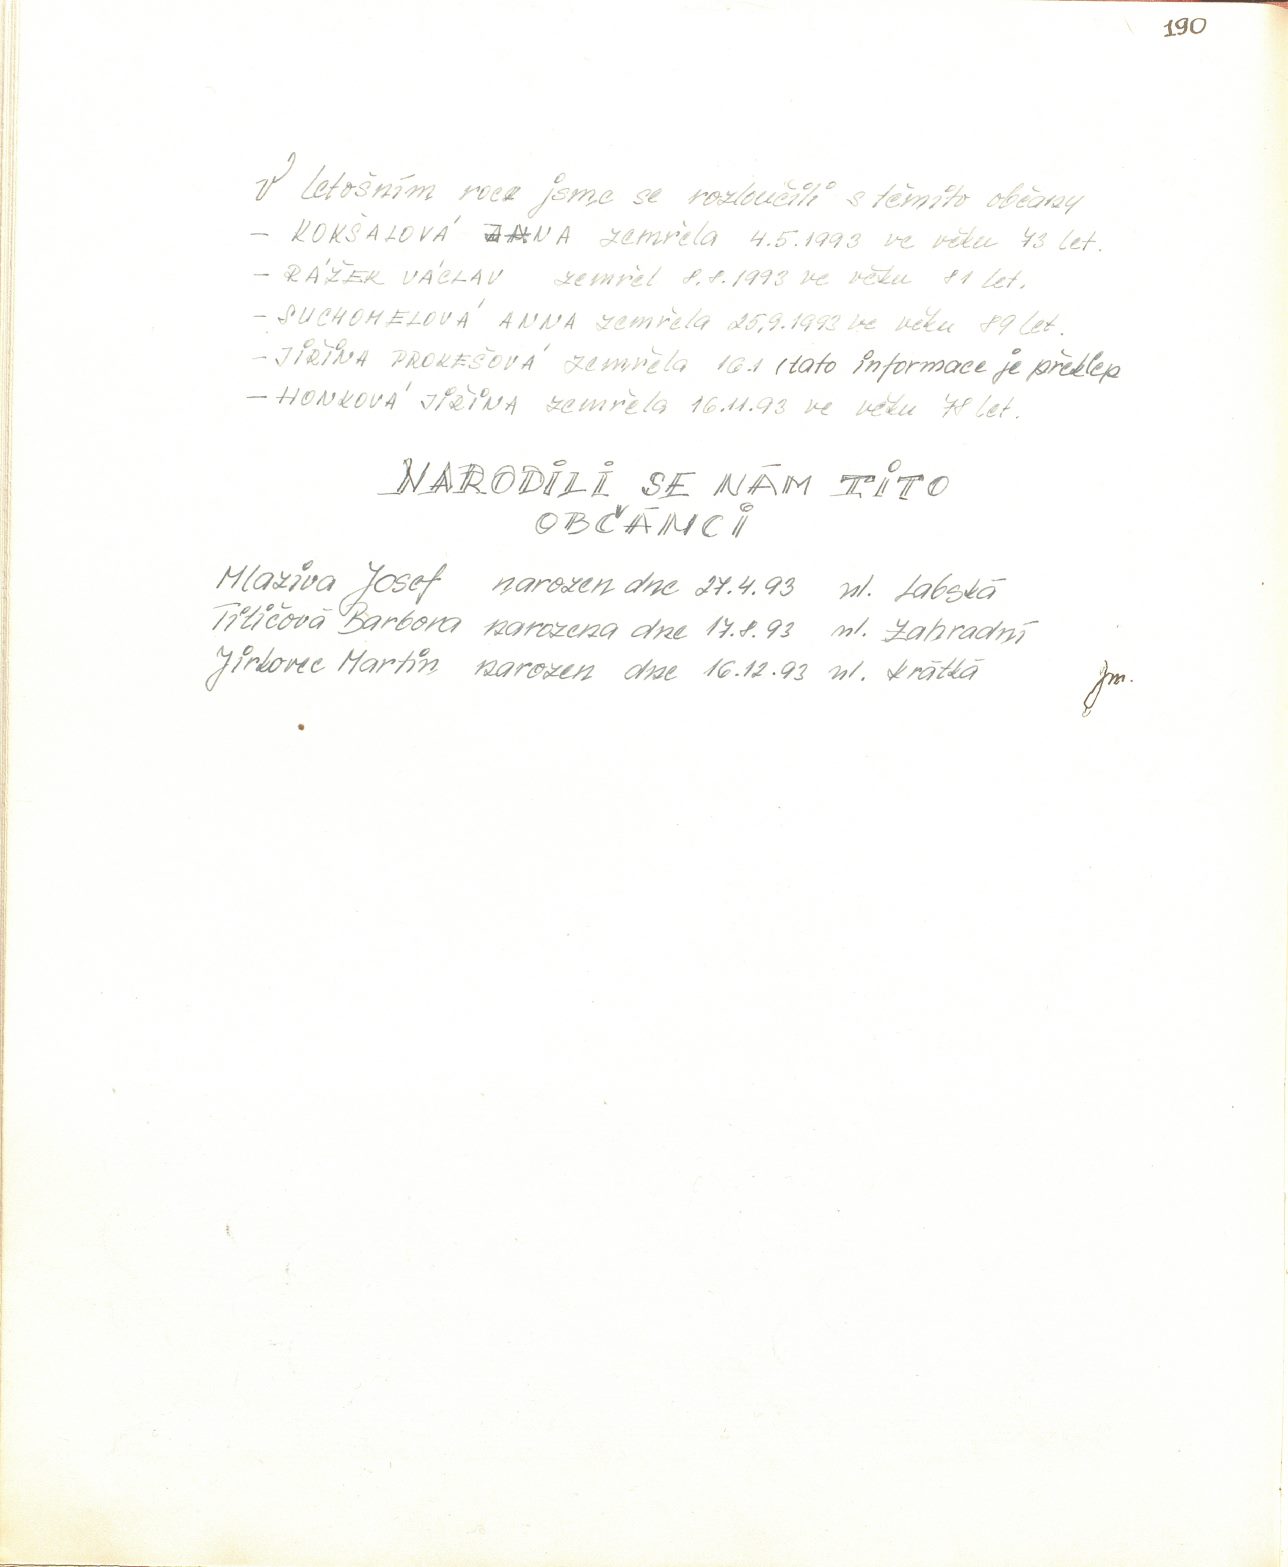 190
V letošním roce jsme se rozloučili s těmito občany
- KOKŠALOVÁ JANA zemřela 4.5.1993 ve věku 73 let.
- RÁŽEK VÁCLAV zemřel 8.8.1993 ve věku 81 let.
- SUCHOMELOVÁ ANNA zemřela 25.9.1993 ve věku 89 let.
- JIŘINA PROKEŠOVÁ zemřela 16.1 (tato informace je překlep
- HONKOVÁ JIŘINA zemřela 16.11.93 ve věku 78 let.
NARODILI SE NÁM TITO
OBČÁNCI
Mlaziva Josef narozen dne 27.4.93 ul. Labská
Tiličová Barbora narozena dne 17.8.93 ul. Zahradní
Jirkovec Martin narozen dne 16.12.93 ul. Krátká
Jm.